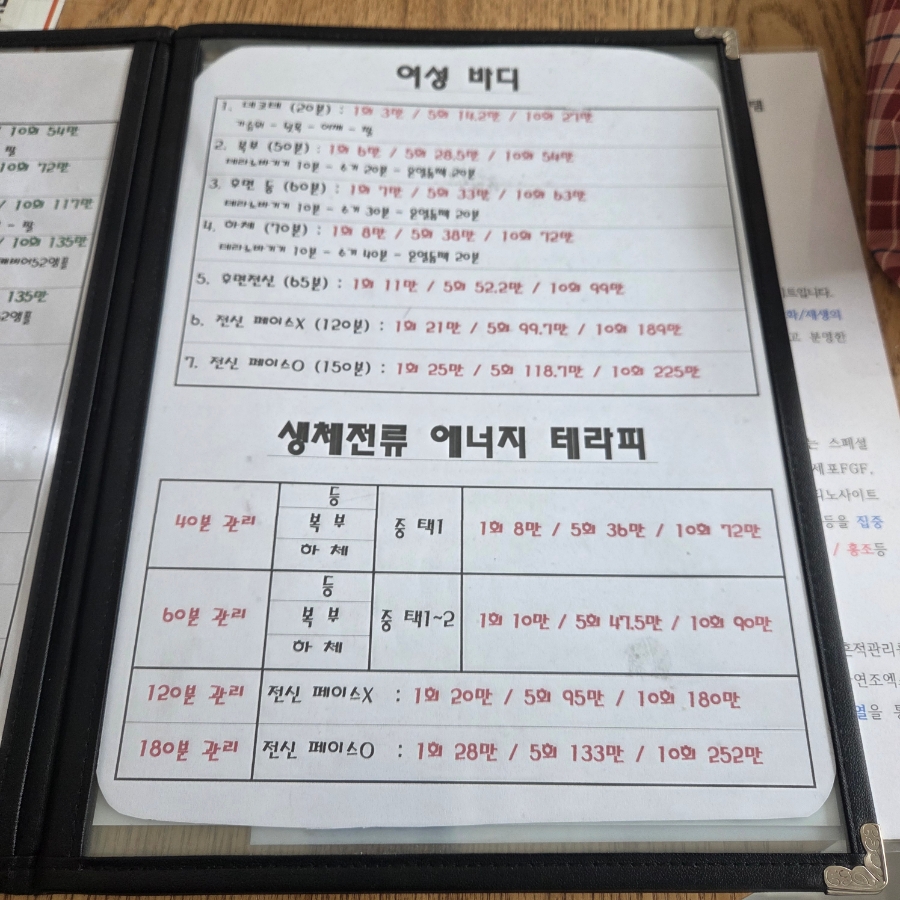 / 10회 54만
10회 72만
/ 10회 117만
/ 10회 135만
135만
여성 바디
1. 데콜테 (20분) : 1회 3만 / 5회 14.2만 / 10회 27만
2. 복부 (50분) : 1회 6만 / 5회 28.5만 / 10회 54만
10분 - 6기 20분 - 온열돔팩 20분
3. 후면 등 (60분) : 1회 7만 / 5회 33만 / 10회 63만
10분 - 6기 30분 - 온열돔팩 20분
4. 하체 (70분) : 1회 8만 / 5회 38만 / 10회 72만
10분 - 6기 40분 - 온열돔팩 20분
5. 후면전신 (65분) : 1회 11만 / 5회 52.2만 / 10회 99만
6. 전신 페이스X (120분) : 1회 21만 / 5회 99.7만 / 10회 189만
7. 전신 페이스O (150분) : 1회 25만 / 5회 118.7만 / 10회 225만
생체전류 에너지 테라피
40분 관리
등
복부
하체
중 택1
1회 8만 / 5회 36만 / 10회 72만
60분 관리
등
복부
하체
중 택1~2
1회 10만 / 5회 47.5만 / 10회 90만
120분 관리 전신 페이스X : 1회 20만 / 5회 95만 / 10회 180만
180분 관리 전신 페이스O : 1회 28만 / 5회 133만 / 10회 252만
화/재생의
고 분명한
는 스페셜
세포FGF,
등을 집중
/ 홍조등
흔적관리